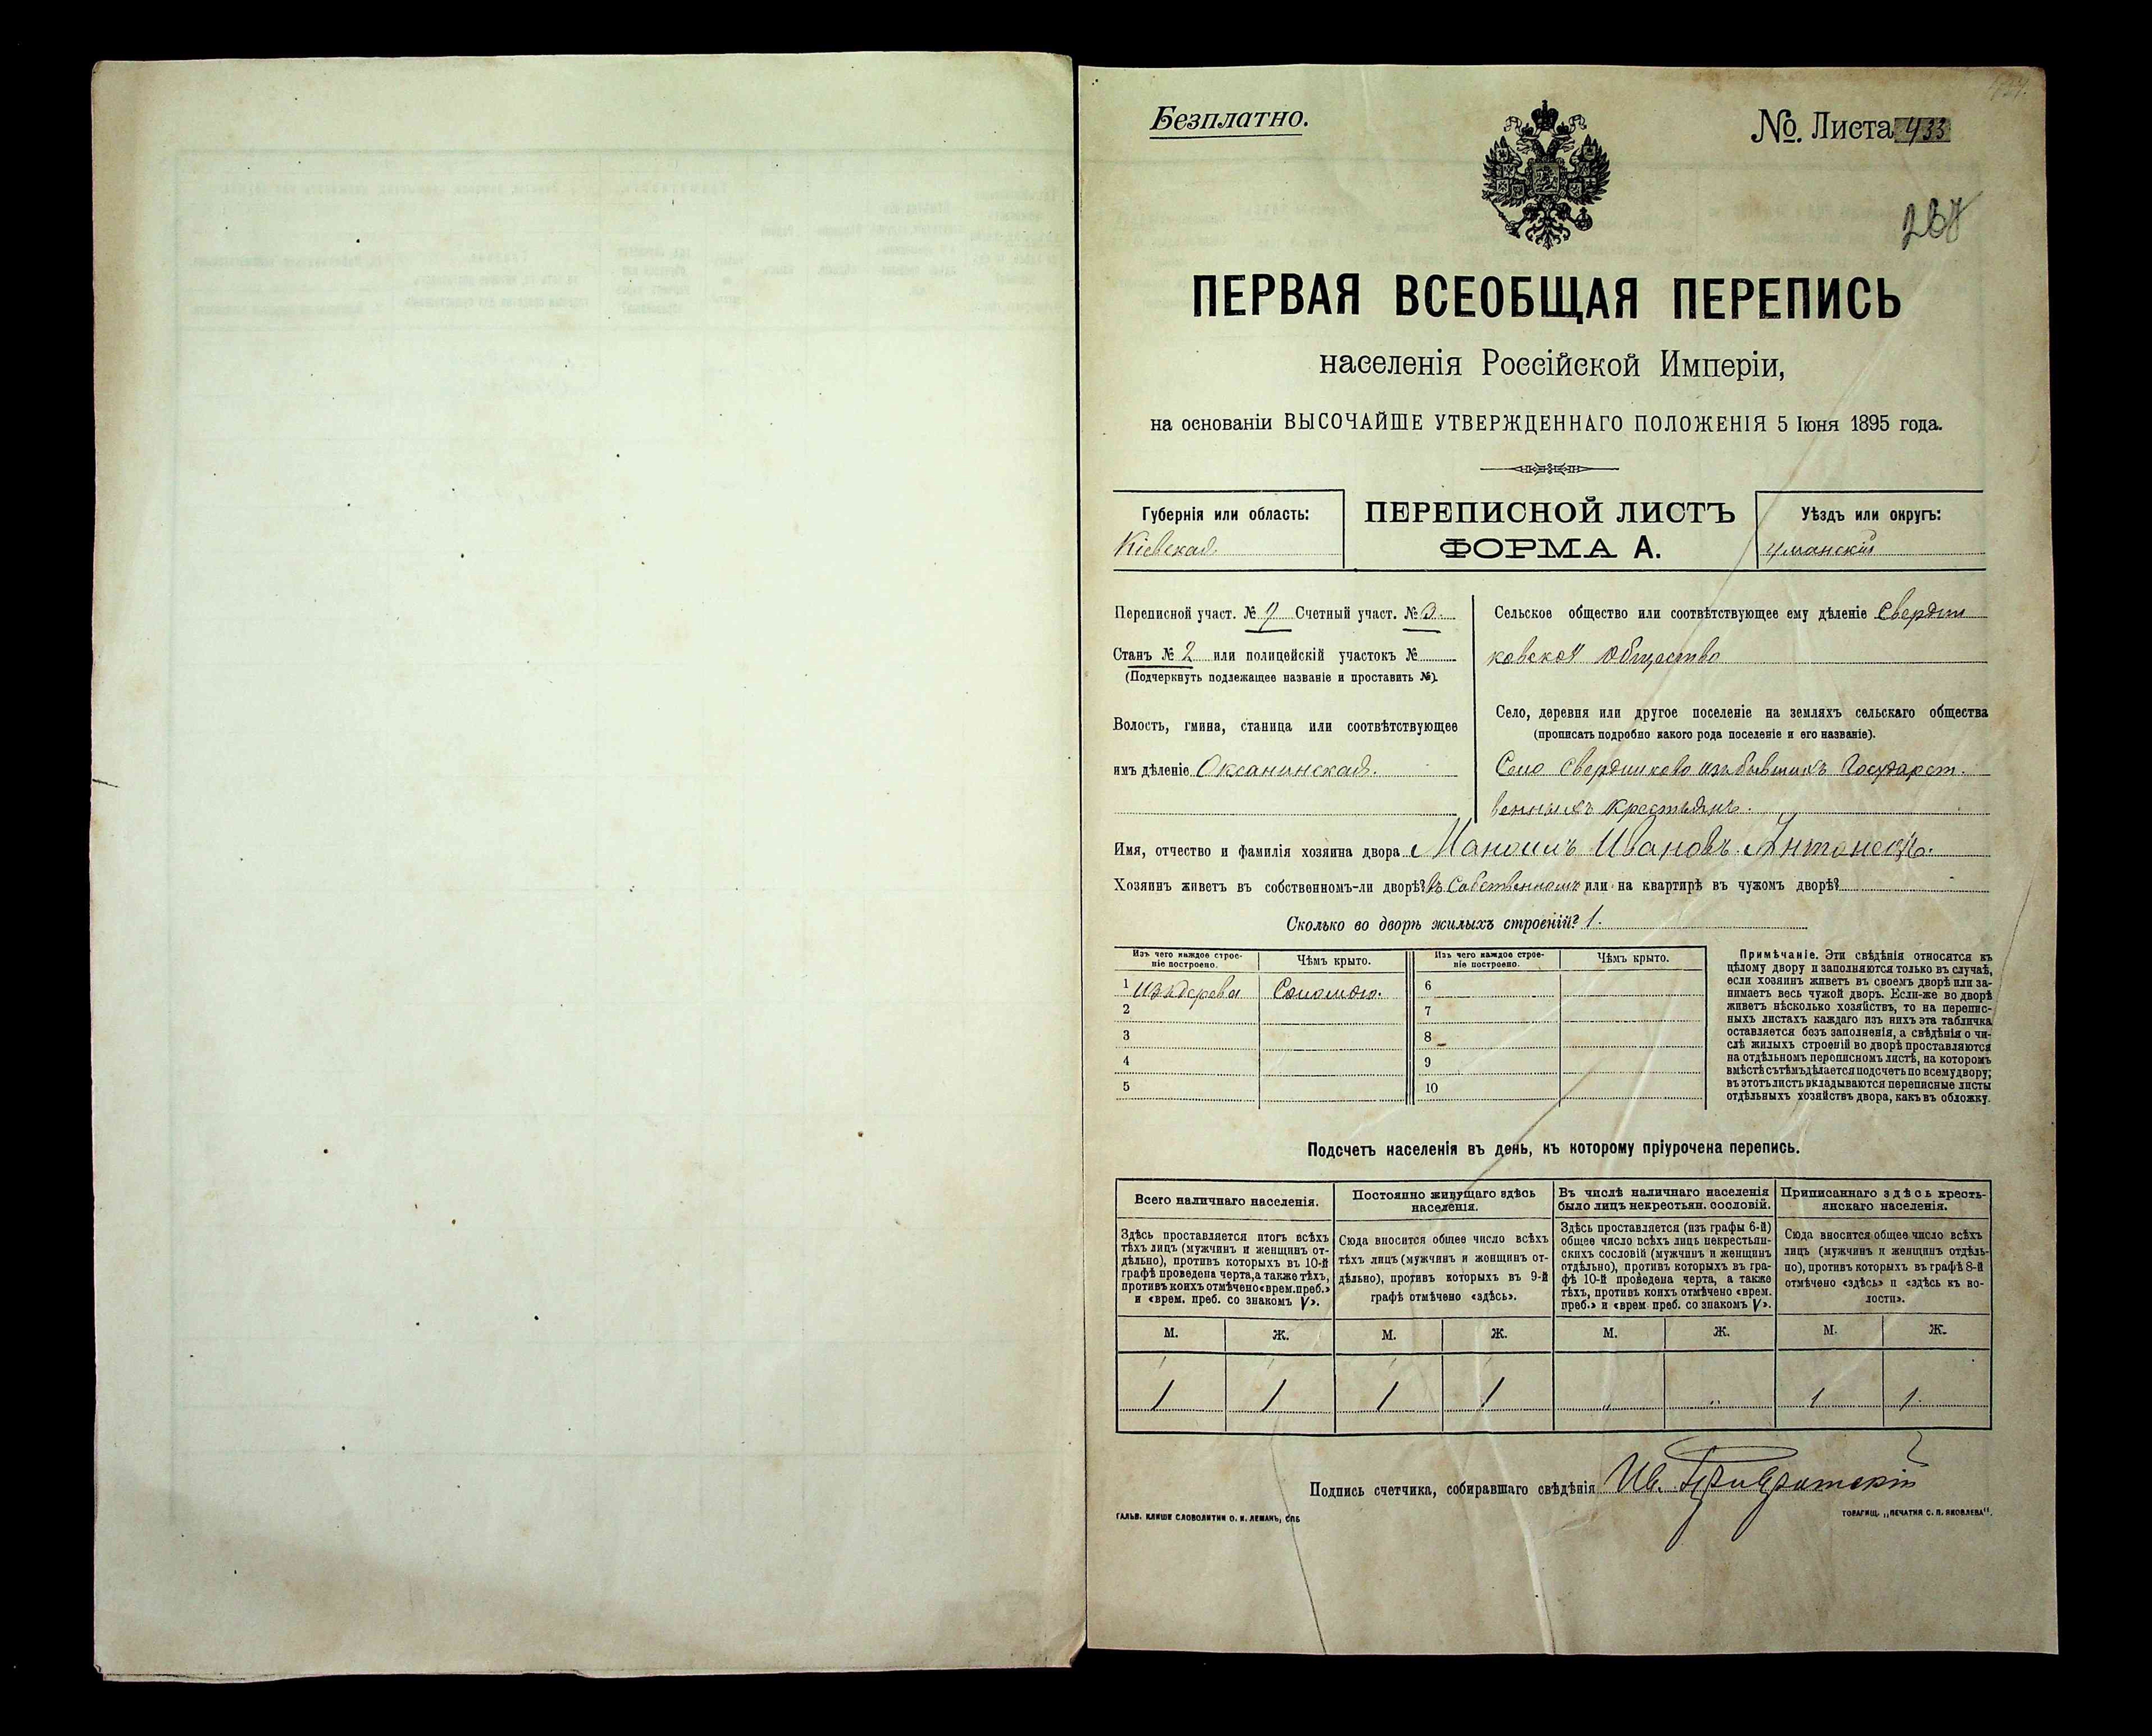 Безплатно.
№ Листа 433
ПЕРВАЯ ВСЕОБЩАЯ ПЕРЕПИСЬ
населенія Россійской Имперіи,
на основаніи ВЫСОЧАЙШЕ УТВЕРЖДЕННАГО ПОЛОЖЕНІЯ 5 Іюня 1895 года.
Губернія или область:
Кіевская.
ПЕРЕПИСНОЙ ЛИСТЪ
ФОРМА А.
Уѣздъ или округъ:
Уманскій
Переписной участ. № Счетный участ. №
Станъ № 2 или полицейскій участокъ №
(Подчеркнуть подлежащее названіе и проставить №).
Волость, гмина, станица или соотвѣтствующее
имъ дѣленіе Оксанинская.
Сельское общество или соотвѣтствующее ему дѣленіе Свердли
ковское Общество
Село, деревня или другое поселеніе на земляхъ сельскаго общества
(прописать подробно какого рода поселеніе и его названіе).
Село Свердликово изъ бывшихъ Государст.
венныхъ крестьянъ.
Имя, отчество и фамилія хозяина двора Ивановъ
Хозяинъ живетъ въ собственномъ-ли дворѣ? въ Собственномъ или на квартирѣ въ чужомъ дворѣ?
Сколько во дворѣ жилыхъ строеній? 1.
Изъ чего каждое строе-
ніе построено.
Чѣмъ крыто.
Изъ чего каждое строе-
ніе построено.
Чѣмъ крыто.
1 Изъ дерева Соломою. 6
2 7
3 8
4 9
5 10
Примѣчаніе. Эти свѣдѣнія относятся къ
цѣлому двору и заполняются только въ случаѣ,
если хозяинъ живетъ въ своемъ дворѣ или за-
нимаетъ весь чужой дворъ. Если-же во дворѣ
живетъ нѣсколько хозяйствъ, то на перепис-
ныхъ листахъ каждаго изъ нихъ эта табличка
оставляется безъ заполненія, а свѣдѣнія о чи-
слѣ жилыхъ строеній во дворѣ проставляются
на отдѣльномъ переписномъ листѣ, на которомъ
вмѣстѣ съ тѣмъ дѣлается подсчетъ по всему двору;
въ этотъ листъ вкладываются переписные листы
отдѣльныхъ хозяйствъ двора, какъ въ обложку.
Подсчетъ населенія въ день, къ которому пріурочена перепись.
Всего наличнаго населенія.
Здѣсь проставляется итогъ всѣхъ
тѣхъ лицъ (мужчинъ и женщинъ от-
дѣльно), противъ которыхъ въ 10-й
графѣ проведена черта, а также тѣхъ,
противъ коихъ отмѣчено «врем. преб.»
и «врем. преб. со знакомъ V».
Постоянно живущаго здѣсь
населенія.
Сюда вносится общее число всѣхъ
тѣхъ лицъ (мужчинъ и женщинъ от-
дѣльно), противъ которыхъ въ 9-й
графѣ отмѣчено «здѣсь».
Въ числѣ наличнаго населенія
было лицъ некрестьян. сословій.
Здѣсь проставляется (изъ графы 6-й)
общее число всѣхъ лицъ некрестьян-
скихъ сословій (мужчинъ и женщинъ
отдѣльно), противъ которыхъ въ гра-
фѣ 10-й проведена черта, а также
тѣхъ, противъ коихъ отмѣчено «врем.
преб.» и «врем. преб. со знакомъ V».
Приписаннаго здѣсь кресть-
янскаго населенія.
Сюда вносится общее число всѣхъ
лицъ (мужчинъ и женщинъ отдѣль-
но), противъ которыхъ въ графѣ 8-й
отмѣчено «здѣсь» и «здѣсь къ во-
лости».
М. Ж. М. Ж. М. Ж. М. Ж.
1 1 1 1 " " 1 1.
Подпись счетчика, собиравшаго свѣдѣнія Ив.
ГАЛЬВ. КЛИШЕ СЛОВОЛИТНИ О. И. ЛЕМАНЪ, СПБ
ТОВАРИЩ. „ПЕЧАТНЯ С. П. ЯКОВЛЕВА".